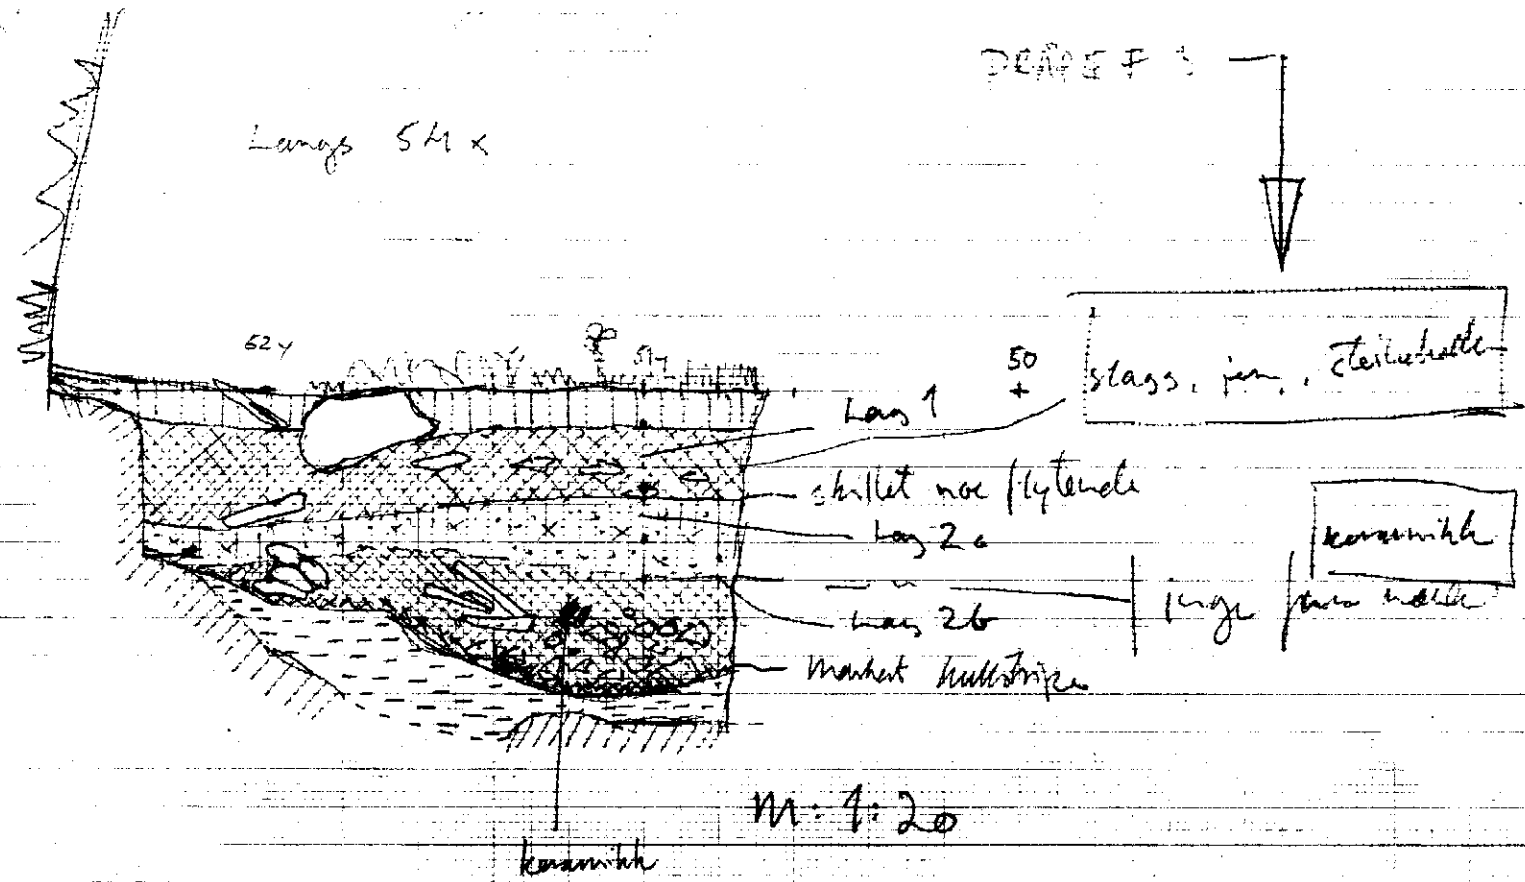 Langs 54 x
52y
51y
50
slagg, jern,
Lag 1
skillet noe flytende
Lag 2a
keramikk
Lag 2b
ingen
Markert kullstripe
M: 1:20
keramikk